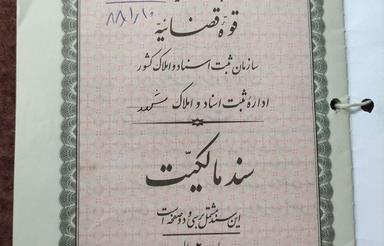 ۸۸/۱/۱۰
قوه قضائیه
سازمان ثبت اسناد و املاک کشور
اداره ثبت اسناد و املاک
سند مالکیت
این سند مشتمل بر سی و دو صفحه است